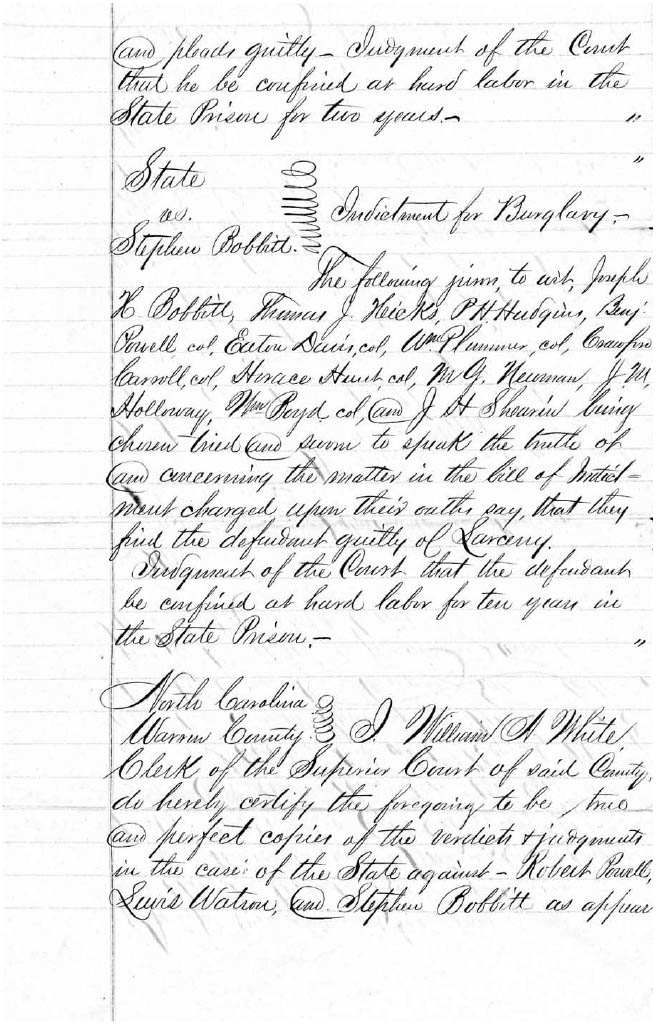 and pleads guilty – Judgment of the Court
that he be confined at hard labor in the
State Prison for two years. – "
"
State
vs.
Stephen Bobbitt.
Indictment for Burglary. –
The following jurors, to wit, Joseph
H. Bobbitt, Thomas J. Hicks, P H Hudgins, Benj.
Powell, col, Eaton Davis, col, Wm Plummer, col, Crawford
Carroll, col, Horace Hunt col, M G. Newman, J M,
Holloway, Wm Boyd, col, and J. H Shearin being
chosen tried and sworn to speak the truth of
and concerning the matter in the bill of Indict=
ment charged upon their oaths say, that they
find the defendant guilty of Larceny.
Judgment of the Court that the defendant
be confined at hard labor for ten years in
the State Prison. – "
North Carolina
Warren County. I. William A White,
Clerk of the Superior Court of said County,
do hereby certify the foregoing to be true
and perfect copies of the verdicts & judgments
in the case of the State against – Robert Powell,
Lewis Watson, and Stephen Bobbitt as appear